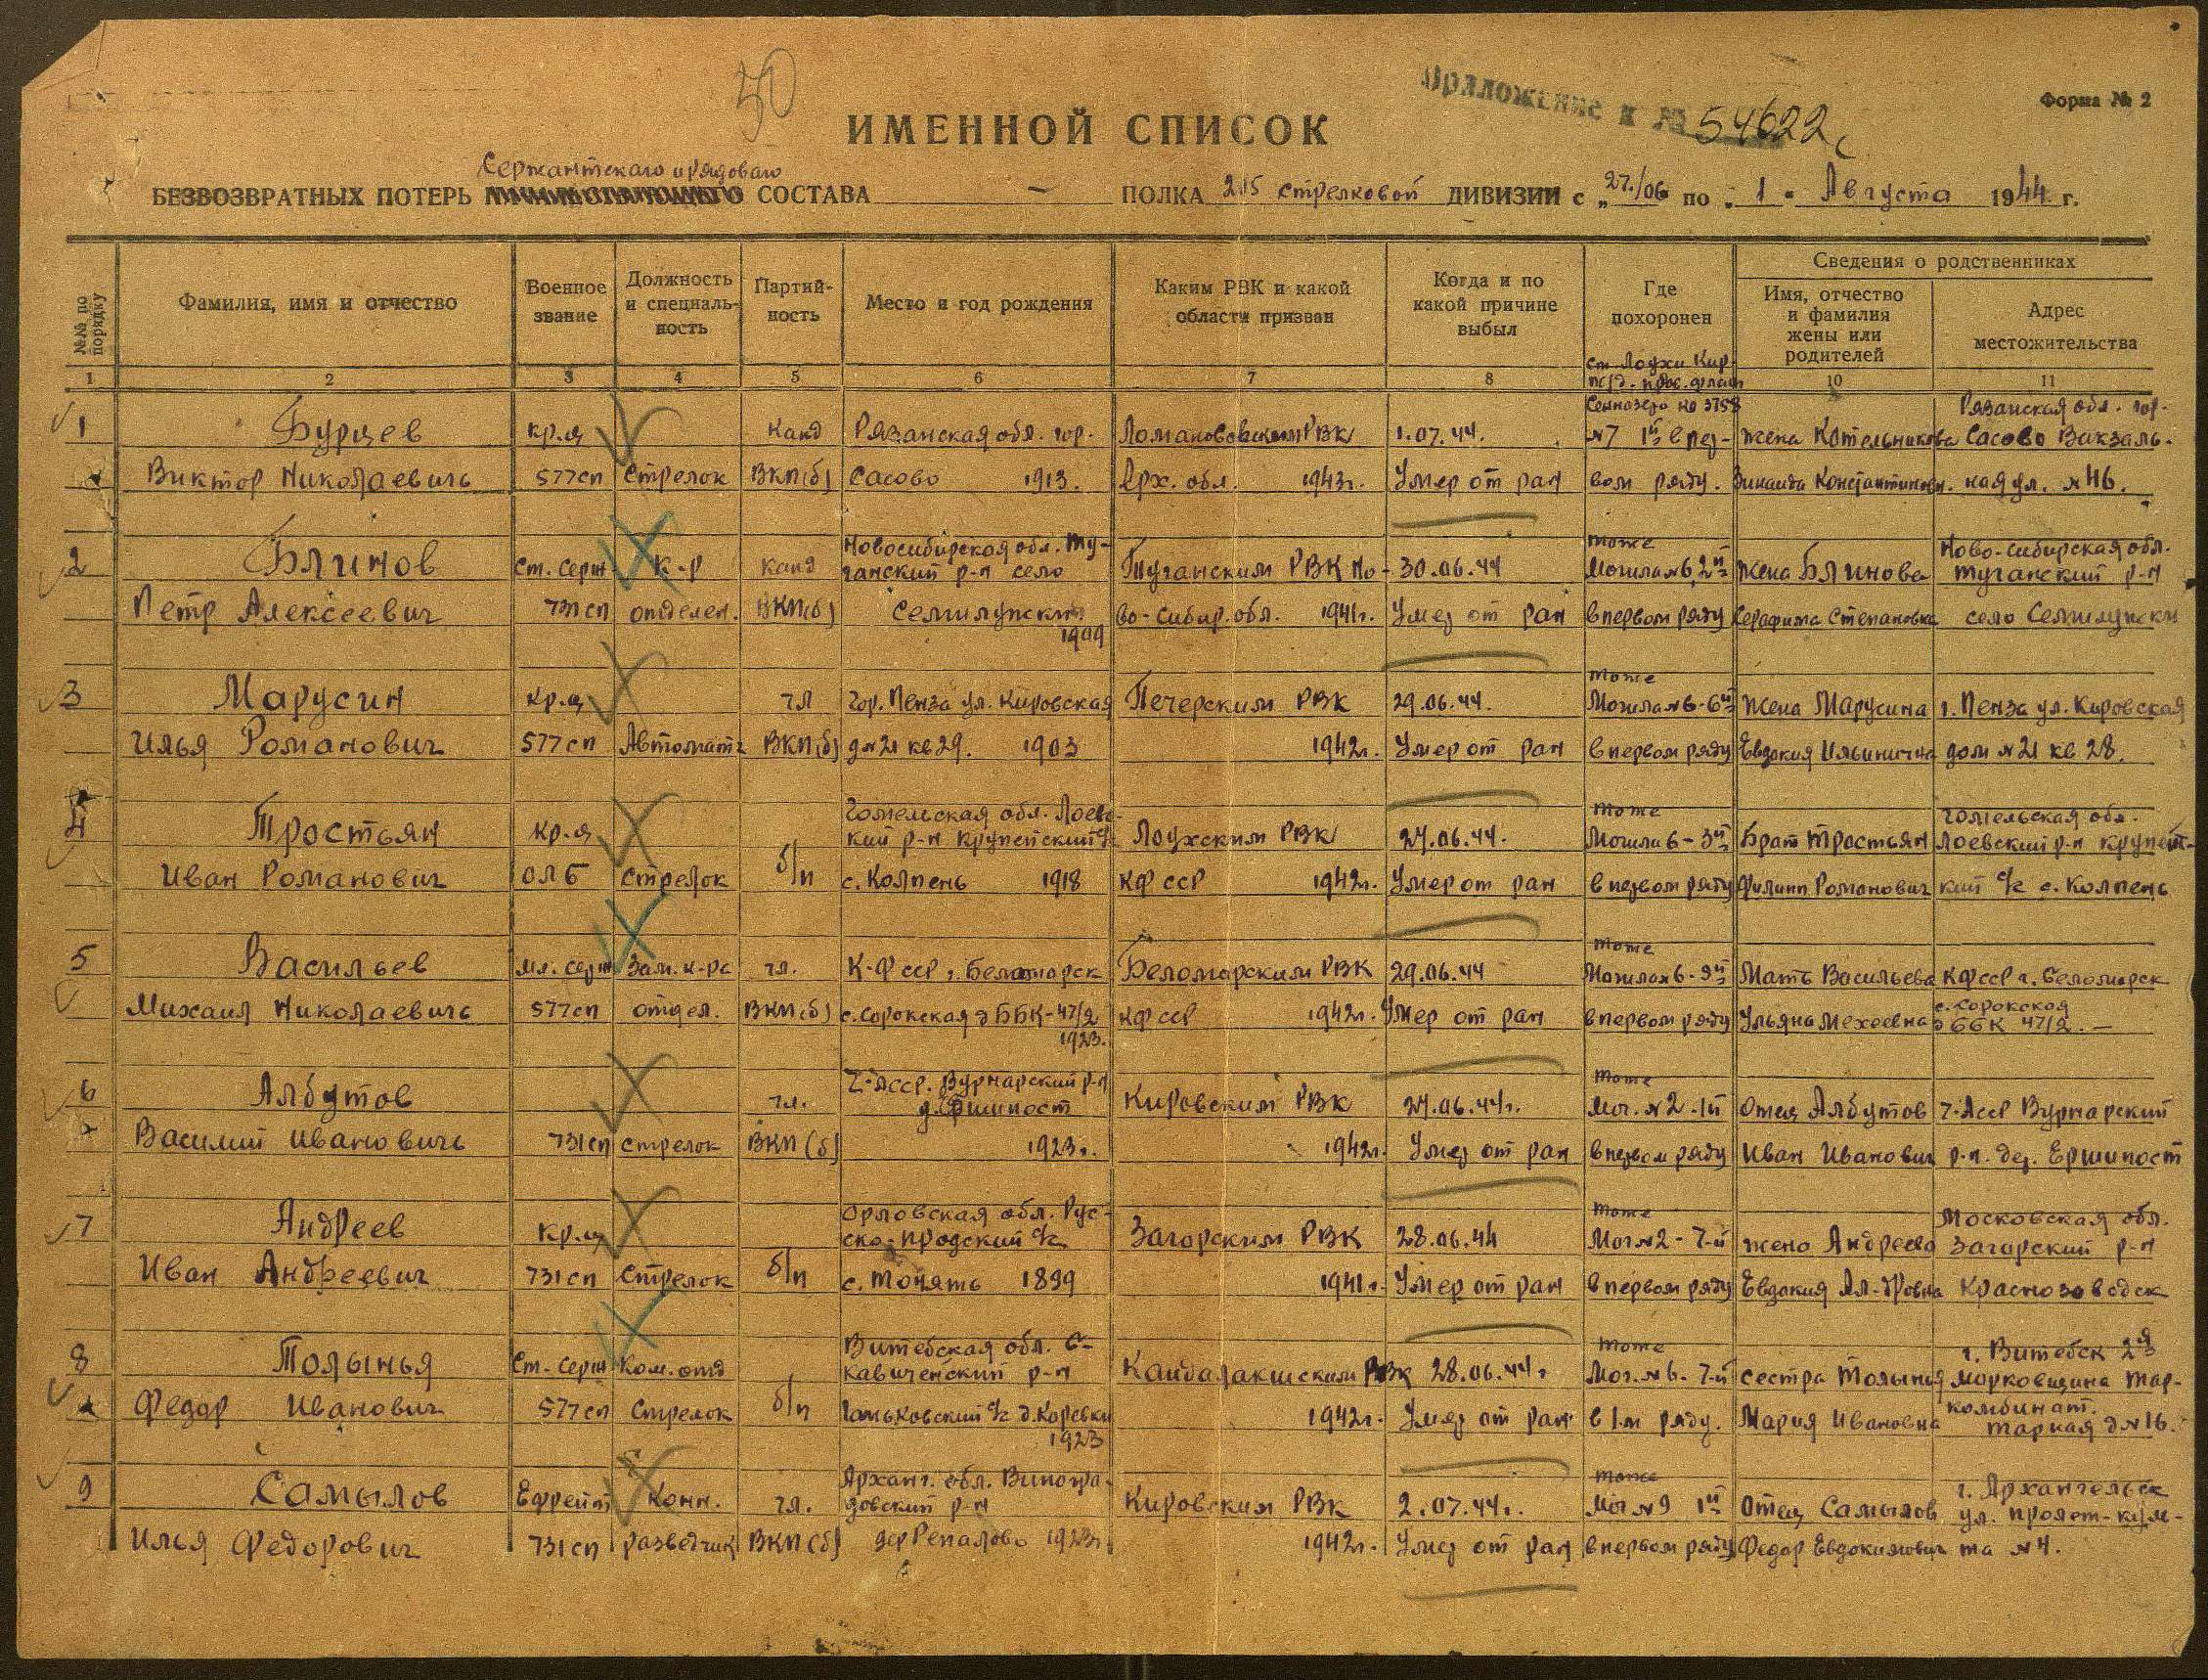 50
Приложение к № 54622с
Форма № 2
ИМЕННОЙ СПИСОК
Сержантского и рядового
БЕЗВОЗВРАТНЫХ ПОТЕРЬ СОСТАВА — ПОЛКА 205 стрелковой ДИВИЗИИ с „27./06 по „1" Августа 1944 г.
№№ по порядку
Фамилия, имя и отчество
Военное звание
Должность и специаль-ность
Партий-ность
Место и год рождения
Каким РВК и какой области призван
Когда и по какой причине выбыл
Где похоронен
Сведения о родственниках
Имя, отчество и фамилия жены или родителей
Адрес местожительства
ст. Лоухи Кир.
1 2 3 4 5 6 7 8 10 11
Рязанская обл. гор.
1 Бурцев кр-ц канд Рязанская обл. гор. РВК 1.07.44. №7 1й в пер- жена Котельникова Сасово Вокзаль-
Виктор Николаевичь 577сп Стрелок ВКП(б) Сасово 1913. Арх. обл. 1943г. Умер от ран вом ряду. Зинаида Константиновн. ная ул. №46.
Новосибирская обл. Ту- тоже Ново-сибирская обл.
2 Блинов Ст. серж к-р канд ганский р-н село Туганским РВК Но- 30.06.44 Могила №6, 2й жена Блинова Туганский р-н
Петр Алексеевич 731сп отделен. ВКП(б) во-сибир. обл. 1941г. Умер от ран в первом ряду Серафима Степановна село
1909
тоже
3 Марусин кр-ц чл гор. Пенза ул. Кировская Печерским РВК 29.06.44. Могила №6-6й жена Марусина г. Пенза ул. Кировская
Илья Романович 577сп Автоматч ВКП(б) д№21 кв 29. 1903 1942г. Умер от ран в первом ряду Евдокия Ильинична дом №21 кв 28.
Гомельская обл. Лоевс- тоже Гомельская обл.
4 Тростьян кр-ц кий р-н крупейский с/с Лоухским РВК 27.06.44. Могила 6-3й Брат Тростьян Лоевский р-н крупейс-
Иван Романович ОЛБ стрелок б/п с. Колпень 1918 КФССР 1942г. Умер от ран в первом ряду Филипп Романович кий с/с с. Колпень
тоже
5 Васильев мл. серж Зам. к-ра чл. К-ФССР г. Беломорск Беломорским РВК 29.06.44 Могила №6-9й Мать Васильева КФССР г. Беломорск
Михаил Николаевичь 577сп отдел. ВКП(б) с. Сорокская д ББК-47/2 КФССР 1942г. Умер от ран в первом ряду Ульяна Мехеевна с. Сорокская д ББК 47/2. —
1923.
Ч-АССР. Вурнарский р-н тоже
6 Албутов чл. Кировским РВК 27.06.44г. Мог. №2-1й Отец Албутов Ч-АССР Вурнарский
Василий Ивановичь 731сп стрелок ВКП(б) 1923г. 1942г. Умер от ран в первом ряду Иван Иванович р-н. дер. Ершипост
Орловская обл. Рус- тоже Московская обл.
7 Андреев кр-ц ско-Бродский с/с Загорским РВК 28.06.44 Мог №2-7-й жена Андреева Загорский р-н
Иван Андреевич 731сп Стрелок б/п 1899 1941г. Умер от ран в первом ряду Евдокия Ал-дровна Краснозаводск
Витебская обл. С- тоже г. Витебск 2я
8 Толынья Ст. серж Ком. отд р-н Кандалакшским РВК 28.06.44г Мог. №6-7-й сестра Толынья Морковщина тар-
Федор Иванович 577сп Стрелок б/п 1942г. Умер от ран в 1-м ряду. Мария Ивановна комбинат. тарная д№16.
1923
Арханг. обл. Виногра- тоже г. Архангельск
9 Самылов Ефрейт Конн. чл. довский р-н Кировским РВК 2.07.44г. Мог №9 1й Отец Самылов ул. пролет-куль-
Илья Федорович 731сп разведчик ВКП(б) дер Репалово 1923г. 1942г. Умер от ран в первом ряду Федор Евдокимович та №4.